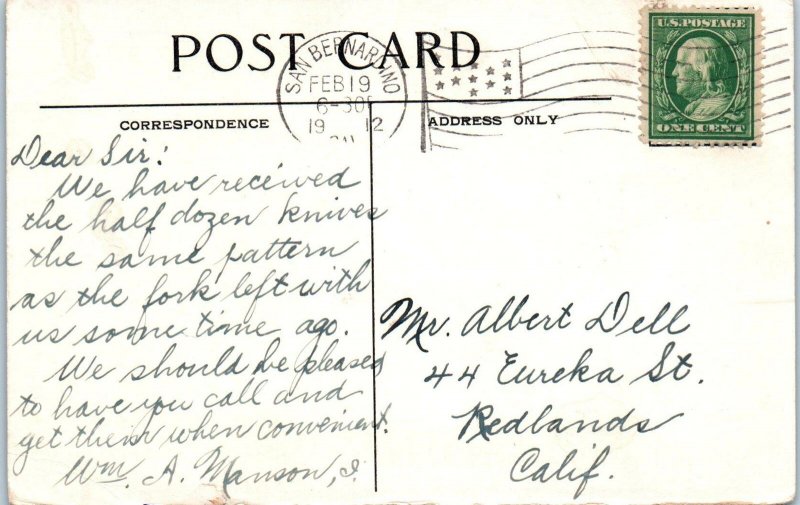 POST CARD
SAN BERNARDINO
FEB 19
6-30P
19 12
U.S. POSTAGE
ONE CENT
CORRESPONDENCE
ADDRESS ONLY
Dear Sir:
We have received
the half dozen knives
the same pattern
as the fork left with
us some time ago.
We should be pleased
to have you call and
get them when convenient.
Wm. A. Manson,
Mr. Albert Dell
44 Eureka St.
Redlands
Calif.